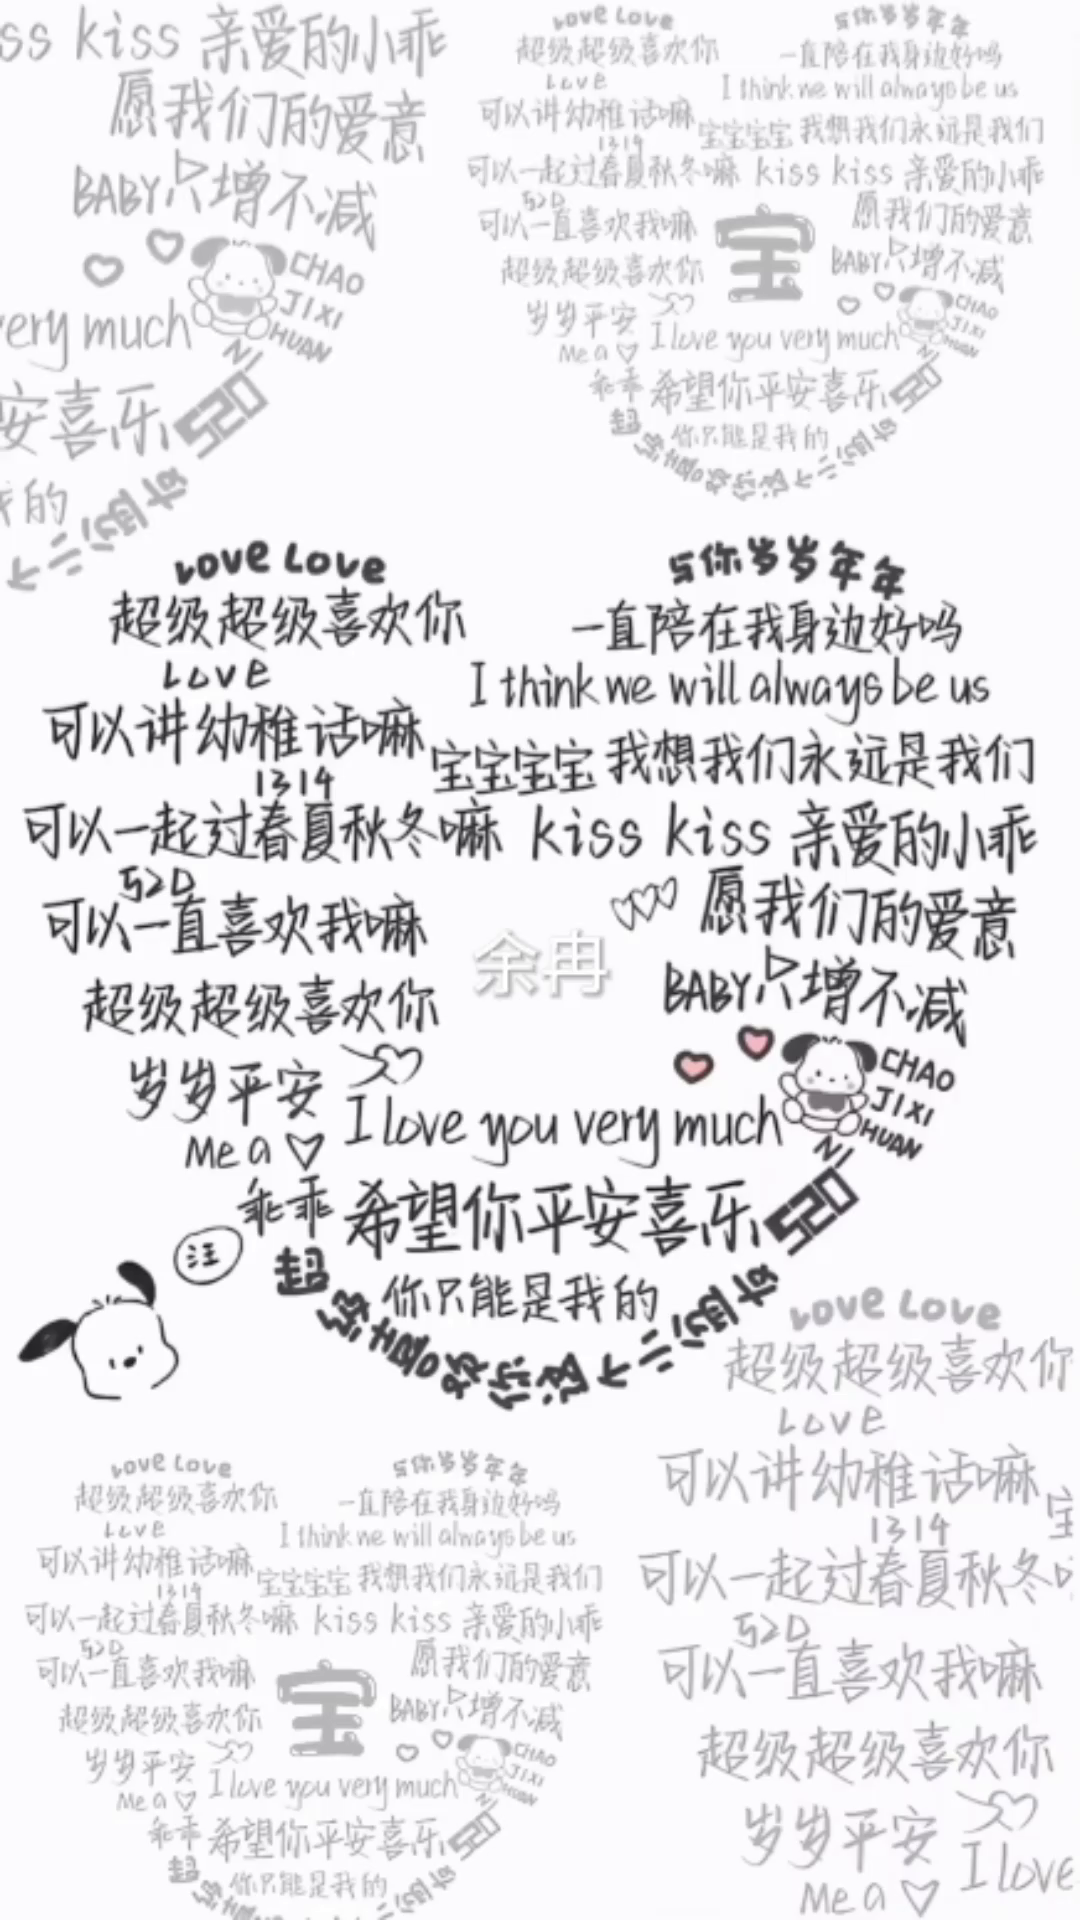 ss kiss 亲爱的小乖
愿我们的爱意
BABY只增不减
CHAO
JIXI
HUAN
NI
very much
安喜乐 520
我的
Love Love
与你岁岁年年
超级超级喜欢你
一直陪在我身边好吗
Love
I think we will always be us
可以讲幼稚话嘛
宝宝宝宝 我想我们永远是我们
1314
可以一起过春夏秋冬嘛 kiss kiss 亲爱的小乖
520
可以一直喜欢我嘛
愿我们的爱意
宝
超级超级喜欢你
BABY只增不减
岁岁平安
CHAO
JIXI
HUAN
NI
Me a I love you very much
乖乖 希望你平安喜乐 520
你只能是我的
Love Love
与你岁岁年年
超级超级喜欢你
一直陪在我身边好吗
Love
I think we will always be us
可以讲幼稚话嘛
宝宝宝宝 我想我们永远是我们
1314
可以一起过春夏秋冬嘛 kiss kiss 亲爱的小乖
520
可以一直喜欢我嘛
愿我们的爱意
余冉
超级超级喜欢你
BABY只增不减
岁岁平安
CHAO
JIXI
HUAN
NI
Me a I love you very much
乖乖 希望你平安喜乐 520
汪
你只能是我的
超级喜欢你这个二
Love Love
超级超级喜欢你
Love
可以讲幼稚话嘛
宝
1314
可以一起过春夏秋冬
520
可以一直喜欢我嘛
超级超级喜欢你
岁岁平安
Me a I love
Love Love
与你岁岁年年
超级超级喜欢你
一直陪在我身边好吗
Love
I think we will always be us
可以讲幼稚话嘛
宝宝宝宝 我想我们永远是我们
1314
可以一起过春夏秋冬嘛 kiss kiss 亲爱的小乖
520
可以一直喜欢我嘛
愿我们的爱意
宝
超级超级喜欢你
BABY只增不减
岁岁平安
CHAO
JIXI
HUAN
NI
Me a I love you very much
乖乖 希望你平安喜乐 520
你只能是我的